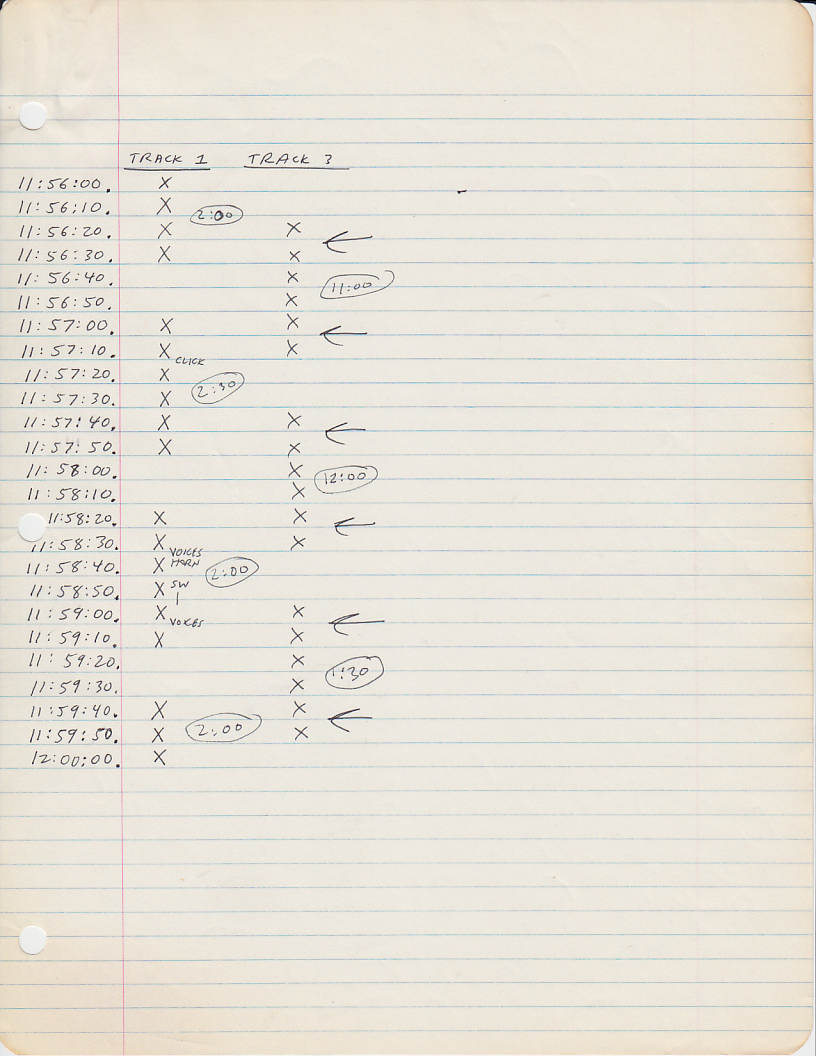 TRACK 1 TRACK 3
11:56:00. X
11:56:10. X 2:00
11:56:20. X X ←
11:56:30. X X
11:56:40. X 11:00
11:56:50. X
11:57:00. X X ←
11:57:10. X CLICK X
11:57:20. X
11:57:30. X 2:30
11:57:40. X X ←
11:57:50. X X
11:58:00. X 12:00
11:58:10. X
11:58:20. X X ←
11:58:30. X VOICES X
11:58:40. X HORN 2:00
11:58:50. X SW
11:59:00. X VOICES X ←
11:59:10. X X
11:59:20. X
11:59:30. X 1:30
11:59:40. X X ←
11:59:50. X 2:00 X
12:00:00. X